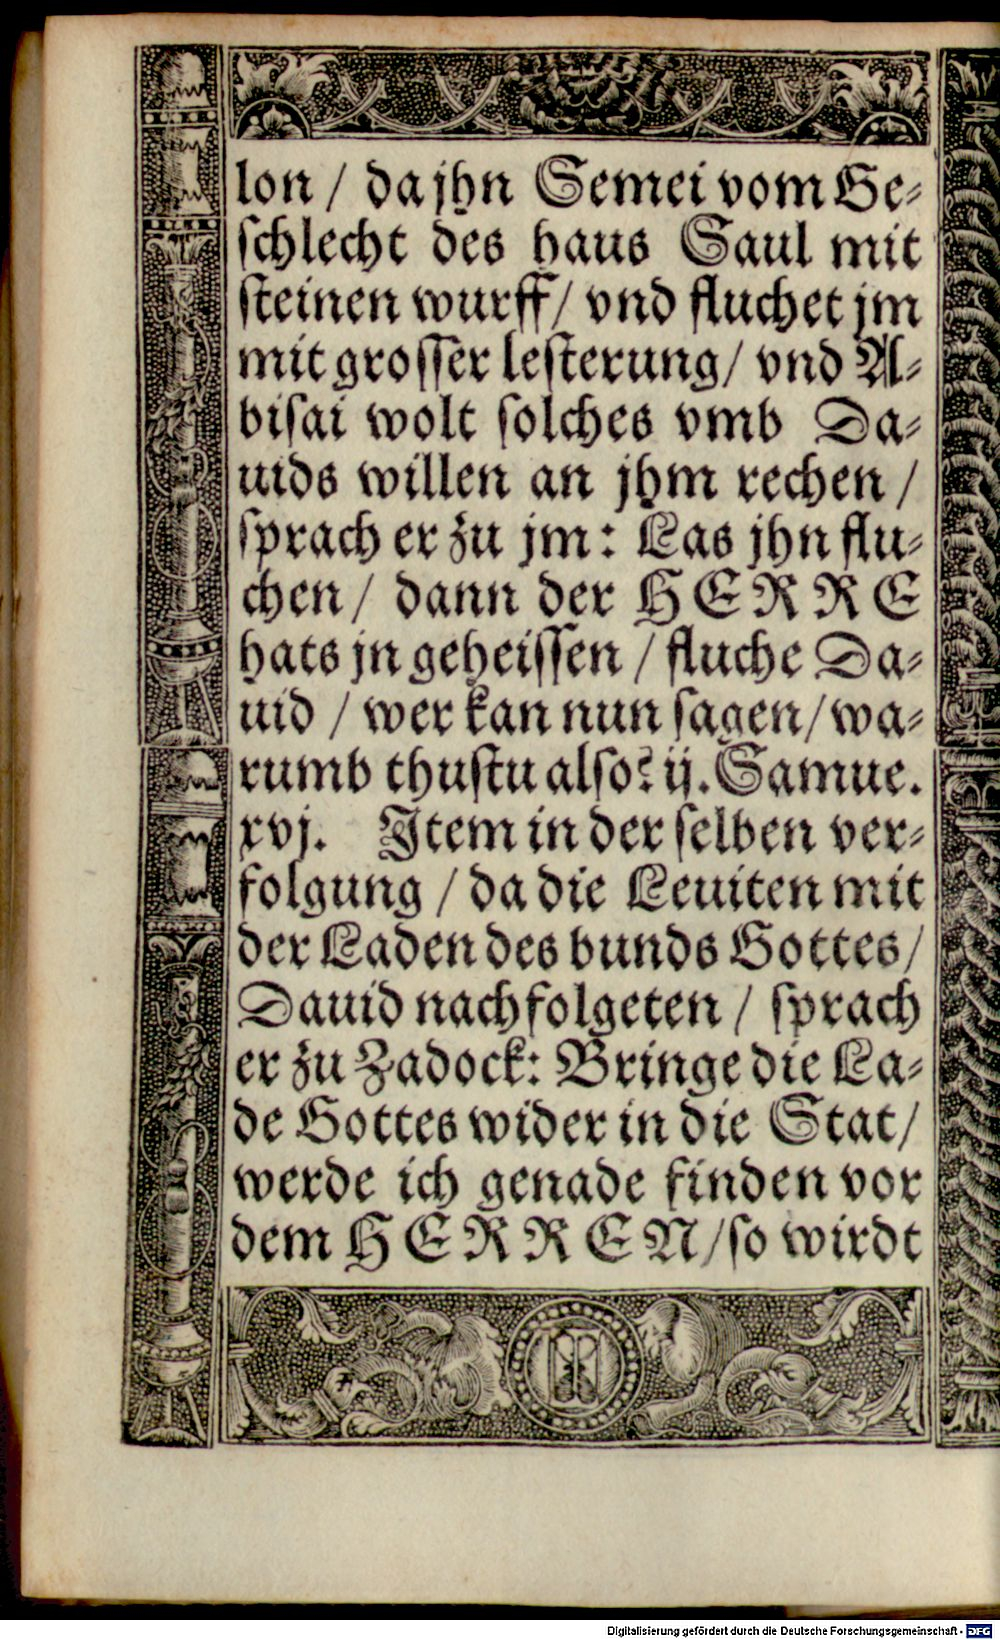 lon / da jhn Semei vom Ge⸗
ſchlecht des haus Saul mit
ſteinen wurff / vnd fluchet jm
mit groſſer leſterung / vnd Al⸗
biſai wolt ſolches vmb Da⸗
uids willen an jhm rechen /
ſprach er zu jm : Las jhn flu⸗
chen / dann der HERRE
hats jn geheiſſen / fluche Da⸗
uid / wer kan nun ſagen / wa⸗
rumb thuſtu alſo? ij. Samue.
xvj. Jtem in der ſelben ver⸗
folgung / da die Leuiten mit
der Laden des bunds Gottes /
Dauid nachfolgeten / ſprach
er zu Zadock: Bringe die La⸗
de Gottes wider in die Stat /
werde ich genade finden vor
dem HERREN / ſo wirdt
Digitalisierung gefördert durch die Deutsche Forschungsgemeinschaft - DFG